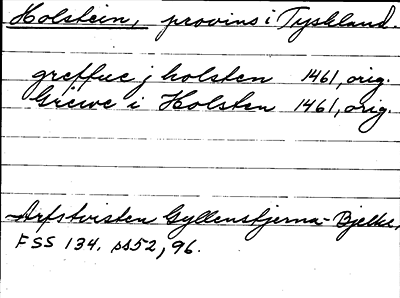 Holstein, provins i Tyskland.
greffue j holsten 1461, orig.
Grewe i Holsten 1461, orig.
Arfstvisten Gyllenstjerna-Bjelke,
FSS 134. ss 52, 96.